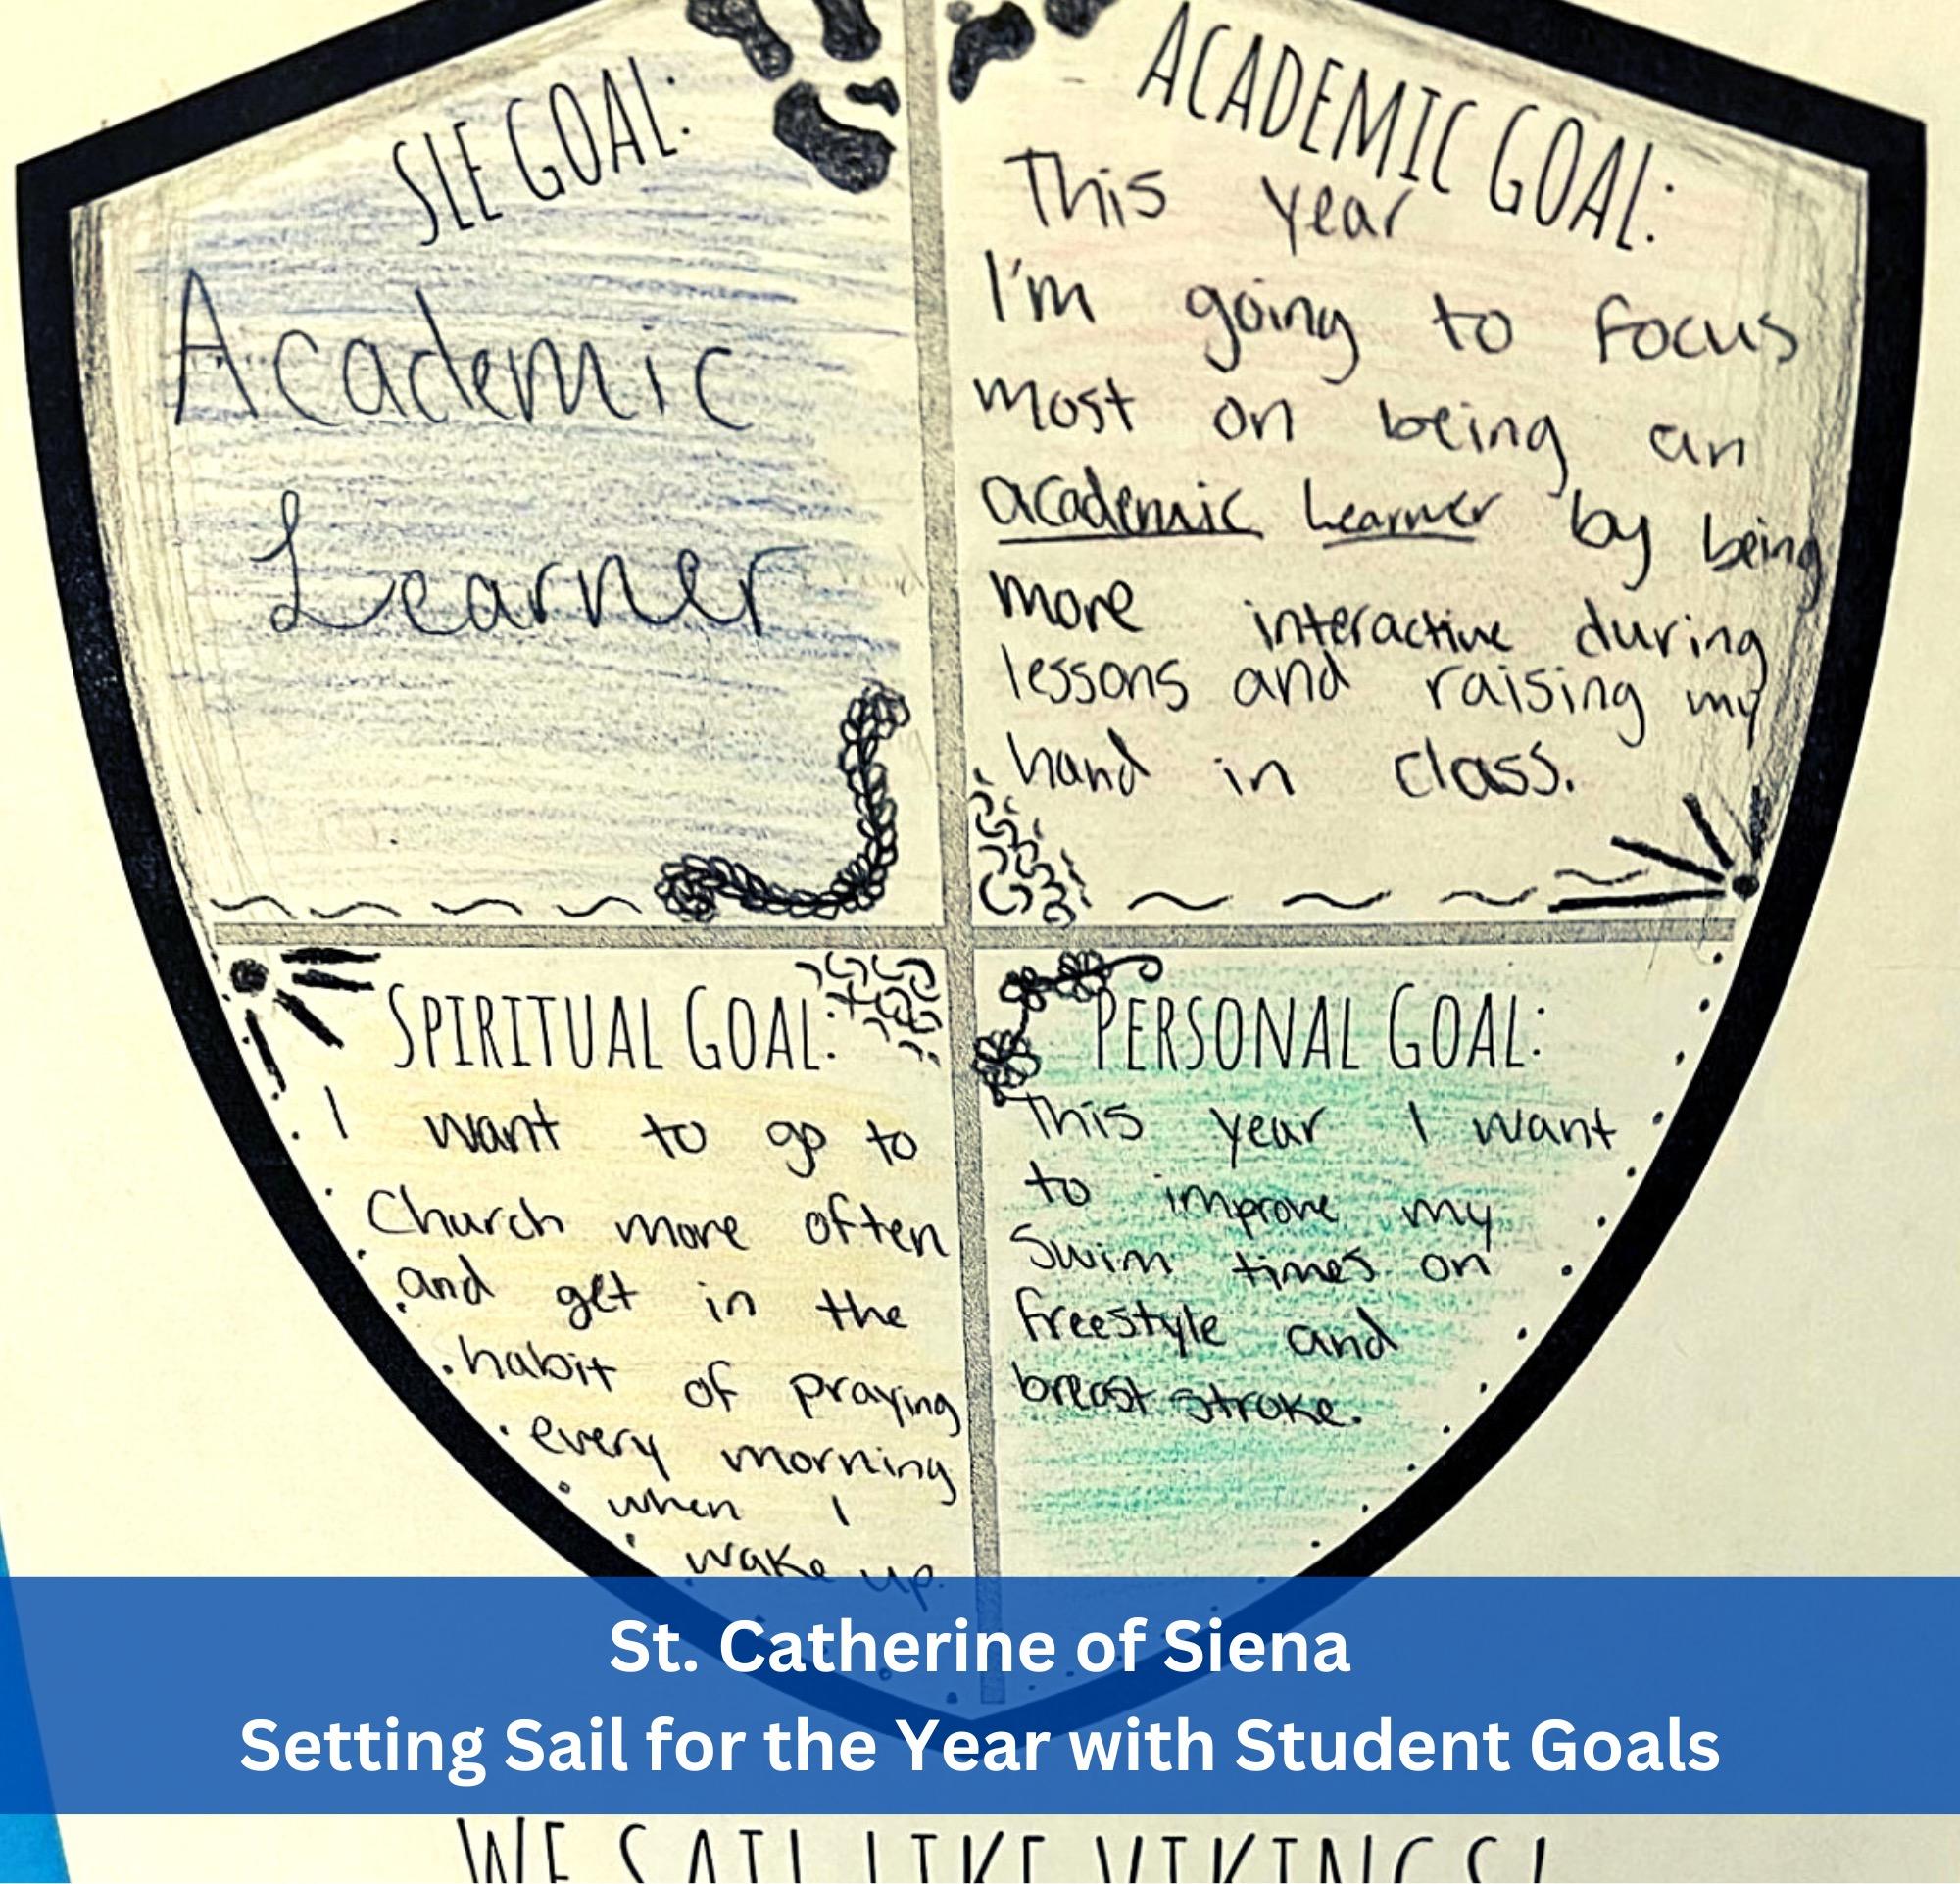 SLE GOAL:
Academic
Learner
ACADEMIC GOAL:
This year
I'm going to focus
most on being an
academic Learner by being
more interactive during
lessons and raising my
hand in class.
SPIRITUAL GOAL:
I want to go to
Church more often
and get in the
habit of praying
every morning
when I
wake up.
PERSONAL GOAL:
This year I want
to improve my
Swim times on
freestyle and
breast stroke.
St. Catherine of Siena
Setting Sail for the Year with Student Goals
WE SAIL LIKE VIKINGS!